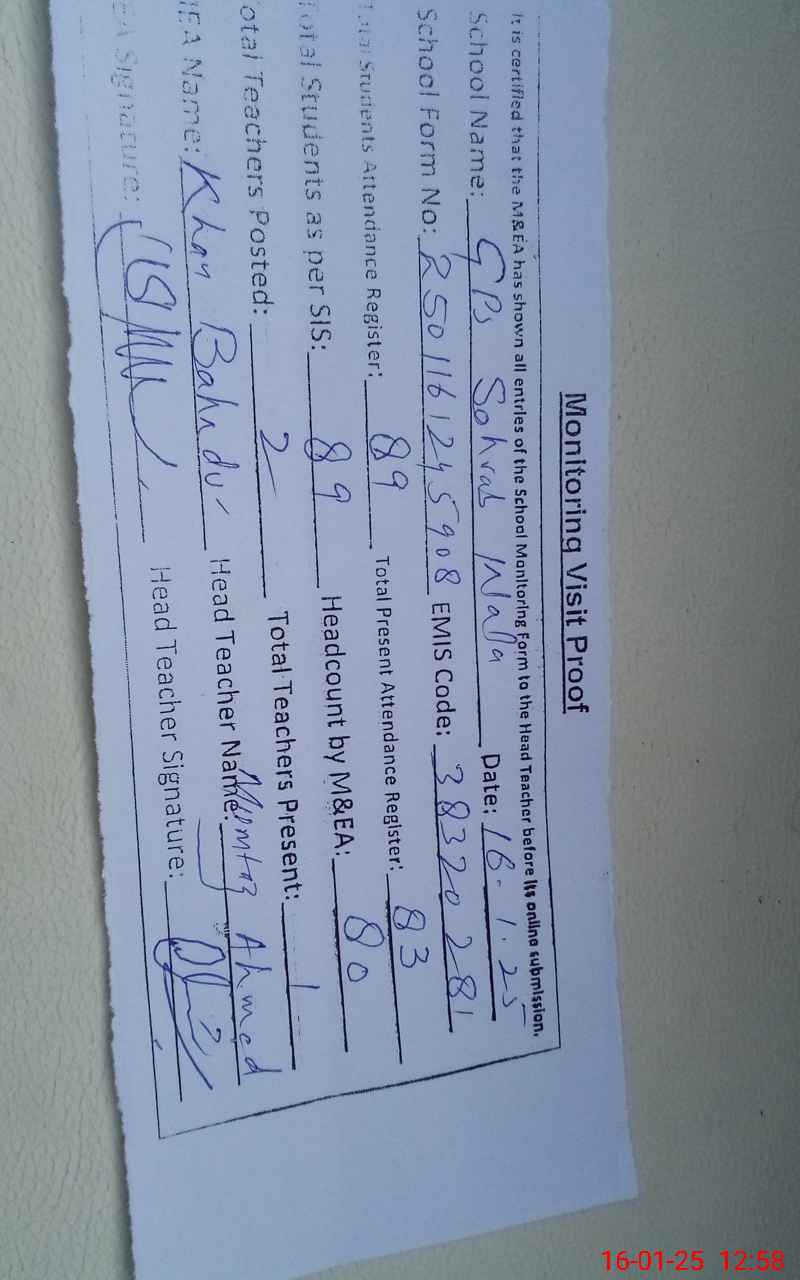 Monitoring Visit Proof
It is certified that the M&EA has shown all entries of the School Monitoring Form to the Head Teacher before its online submission.
School Name: GPS Sohrab Wala Date: 16.1.25
School Form No: 2501161245908 EMIS Code: 38320281
Total Students Attendance Register: 89 Total Present Attendance Register: 83
Total Students as per SIS: 89 Headcount by M&EA: 80
otal Teachers Posted: 2 Total Teachers Present: 1
EA Name: Khan Bahadur Head Teacher Name: Mumtaz Ahmed
EA Signature: Head Teacher Signature:
16-01-25 12:58